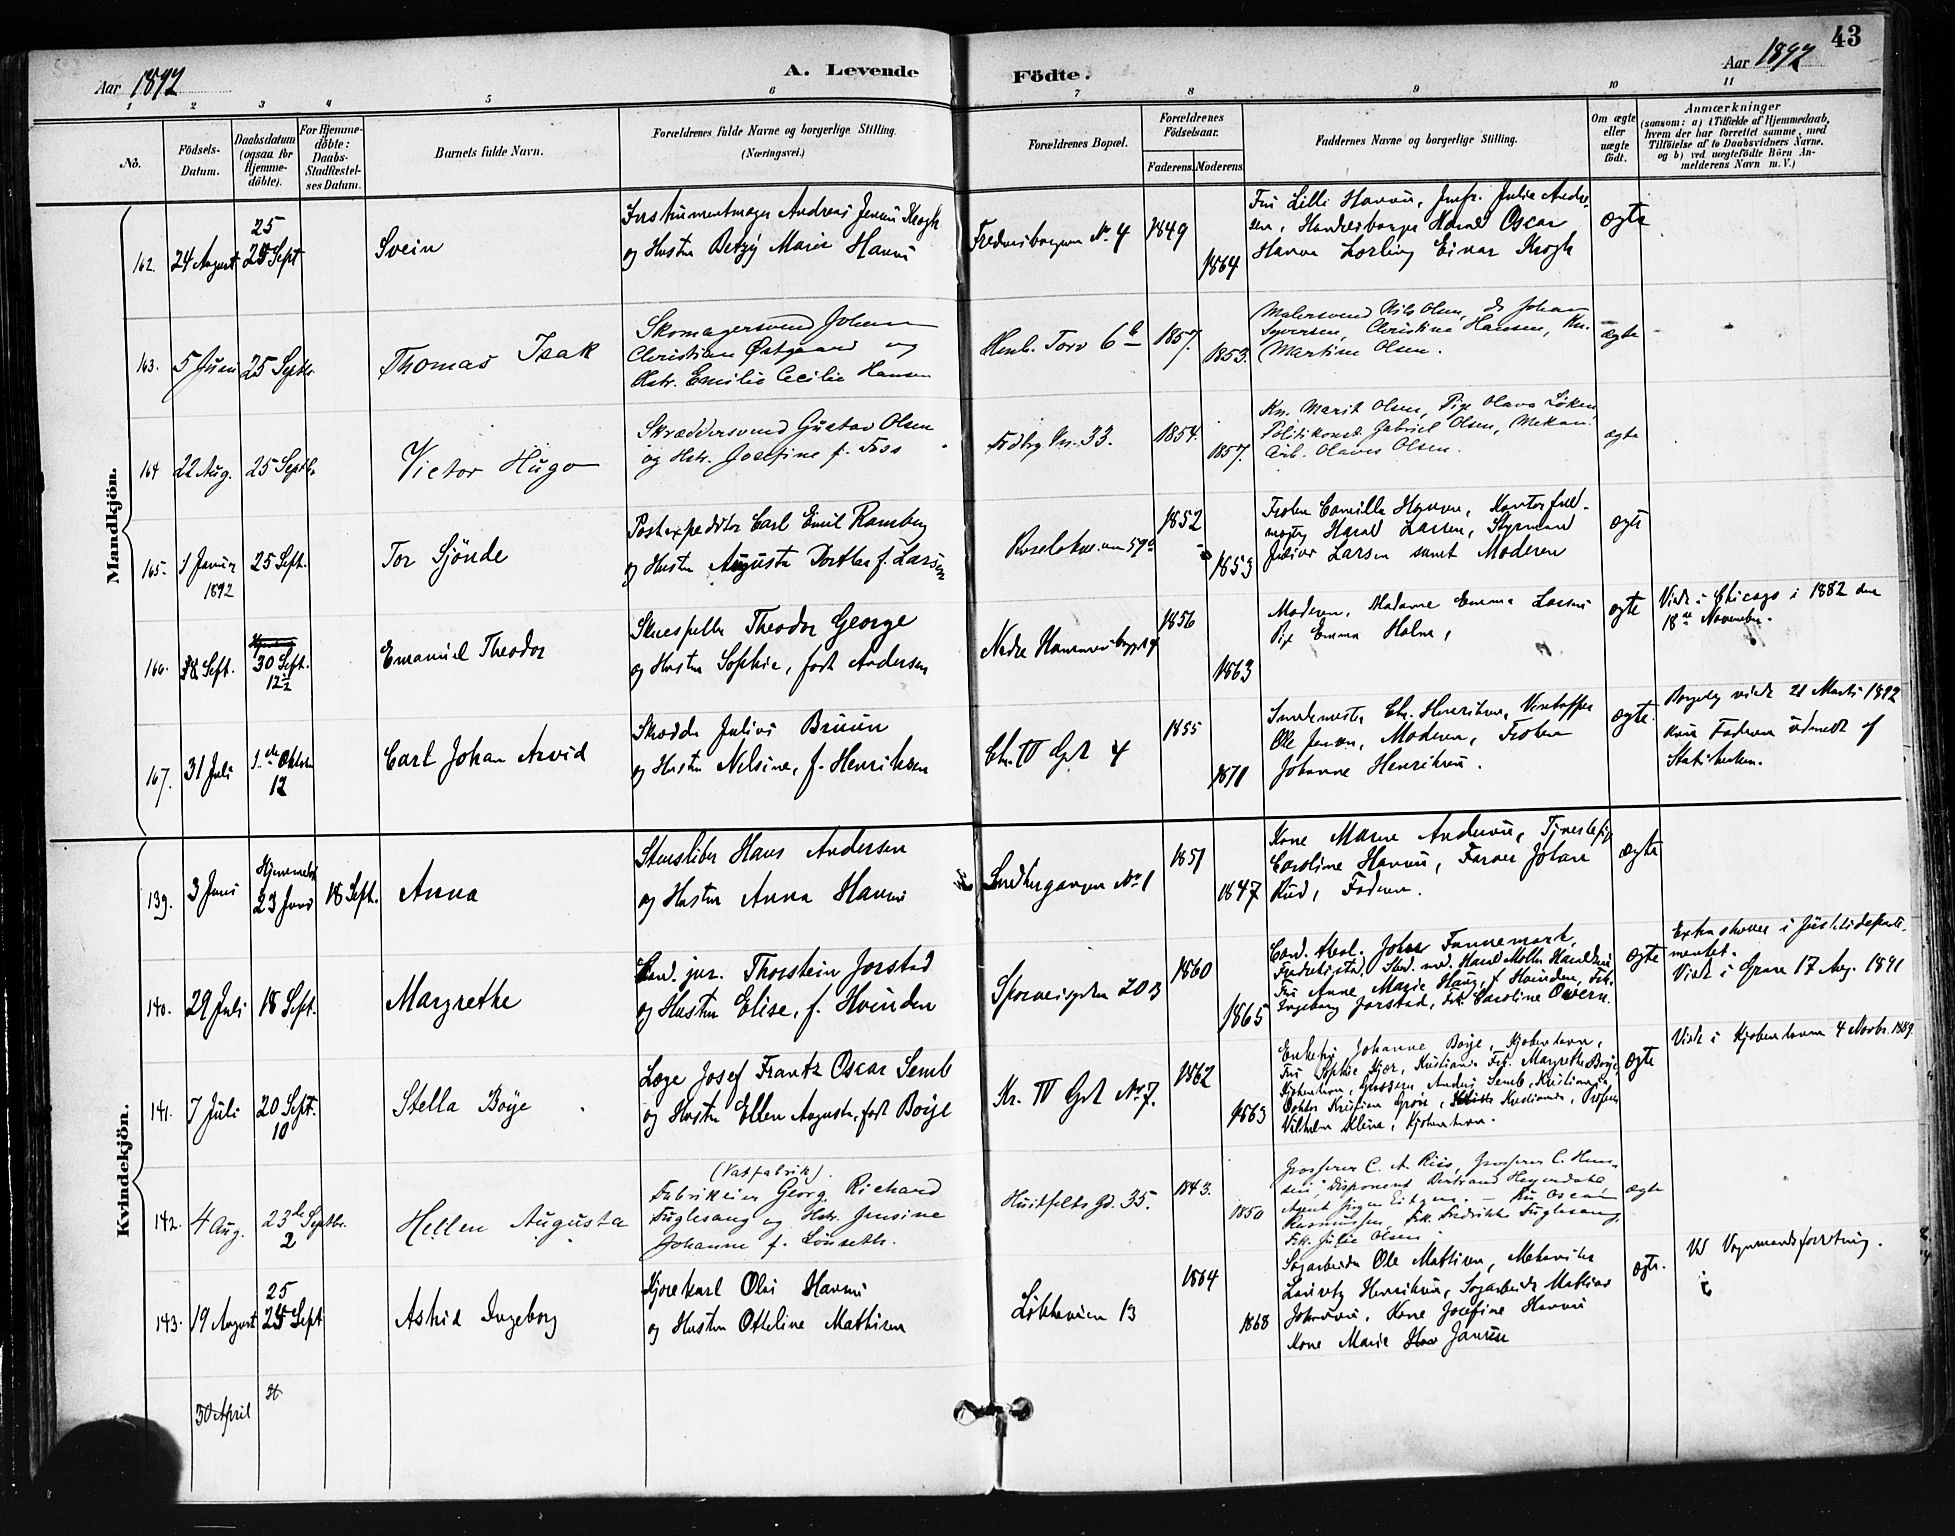 43
Aar 1892
A. Levende Födte.
Aar 1892
1 2 3 4 5 6 7 8 9 10 11
No.
Födsels-Datum.
Daabsdatum (ogsaa for Hjemme-döbte).
For Hjemme-döbte: Daabs-Stadfæstel-ses Datum.
Barnets fulde Navn.
Forældrenes fulde Navne og borgerlige Stilling.
(Næringsvei.)
Forældrenes Bopæl.
Forældrenes Födselsaar.
Faderens. Moderens.
Faddernes Navne og borgerlige Stilling.
Om ægte eller uægte födt.
Anmærkninger
(saasom: a) i Tilfælde af Hjemmedaab, hvem der har forrettet samme, med Tilföielse af to Daabsvidners Navne, og b) ved uegtefödte Börn An-melderens Navn m. V.)
Mandkjön.
162. 24 August 25 25 Sept Svein
Instrumentmager Andreas Jensen Krogh
og Hustru Betzy Marie Hansen
No 4 1849 1864
Fru Lilli Hansen, Jmfr. Julie Andre-
sen, Handelsborger Harald Oscar
Einar Krogh
ægte
163. 5 Juni 25 Septbr. Thomas Isak
Skomagersvend Johan
Christian Østgaard og
Hstr. Emilie Cecilie Hansen
Torv 6 b 1857. 1853.
Malersvend Nils Olsen, do Johan
Syversen, Christine Hansen, Kn.
Martine Olsen.
ægte
164 22 Aug. 25 Septbr Victor Hugo
Skræddersvend Gustav Olsen
og Hstr. Josefine f. Foss
33. 1854. 1857.
Kn. Marit Olsen, Pige Olava Løken,
Politikonst. Gabriel Olsen, Mekan.
Arb. Olaves Olsen.
ægte
165. 1 Januar 1892 25 Sept. Tor Sjönde
Postexpeditør Carl Emil Ramberg
og Hustru Augusta Dorthea f. Larsen
59 1852 1853
Frøken Camilla Hansen, Kontorfuld-
mægtig Harald Larsen, Styrmand
Julius Larsen samt Moderen
ægte
166. 18 Sept. 30 Sept. 12½ Emanuel Theodor
Skuespiller Theodor George
og Hustru Sophie, født Andersen
Nedre 1856 1863
Moderen, Madame Emma Larsen
Pige Emma Holm,
ægte
Viede i Chicago i 1882 den
18de November.
167. 31 Juli 1ste Oktober 12 Carl Johan Arvid
Skrædder Julius Bruun
og Hustru Nelsine, f. Henriksen
Chr. IV Gd. 4 1855 1871
Smedemester Chr. Henriksen,
Ole Jensen, Moderen, Frøken
Johanne Henriksen.
ægte.
Borgerlig viede 21 Marts 1892
Faderen udmeldt af
Statskirken.
Kvindekjön.
139. 3 Juni Hjemmedøbt 23 Juni 18 Sept. Anna
Stensliber Hans Andersen
og Hustru Anna Hansen
No 1 1851 1847
Kone Maren Andersen, Tjenestepige
Caroline Hansen, Farver Johan
Rud, Faderen.
ægte
140. 29 Juli 18 Sept. Margrethe
Cand. jur. Thorstein Jorstad
og Hustru Elise, f. Hvinden
Sporveisgaden 20 B 1860 1865
Cand. theol. Johan Fannemark,
Fredrikstad, Stud. med. Harald Møller
Fru Anne Marie Haug, f. Hvinden, Frk.
Ingeborg Jorstad, Frk. Caroline Owern.
ægte
Extraskriver i Justitsdeparte-
mentet.
Viede i Grane 17 Aug. 1891
141. 7 Juli 20 Sept. 10 Stella Boije
Læge Josef Frantz Oscar Semb
og Hustru Ellen Augusta, født Boije
Kr. IV Gd. No 7. 1862 1863
Enkefru Johanne Boije, Kjøbenhavn,
Fru Sophie Kjær, Kristiania, Frk. Margrethe Boije,
Kjøbenhavn, Grosserer Andreas Semb, Kristiania,
Doktor Kristian Grøn, Kristiania, Professor
Vilhelm Kleine, Kjøbenhavn.
ægte
Viede i Kjøbenhavn 4 Novbr. 1889.
142. 4 Aug. 23de Septbr. 2 Hellen Augusta
(Vatfabrik).
Fabrikeier Georg Richard
Fuglesang og Hstr. Jensine
Johanne f. Lönseth.
Huitfelts Gd. 35. 1843. 1850
Grosserer C. A. Riis, Grosserer C. Han-
sen, Disponent Bertrand
Agent Jörgen Fru Oscar
Rasmussen, Frk. Fredrikke Fuglesang,
Frk. Julie Olsen.
ægte
143. 19 August 25 25 Sept Astrid Ingeborg
Kjørekarl Olai Hansen
og Hustru Otteline Mathisen
Løkkeveien 13 1864 1868
Sagarbeider Ole Mathisen, Mekaniker
Lauritz Henriksen, Sagarbeider Mathias
Johansen, Kone Josefine Hansen
Kone Marie Jansen
ægte.
Ved Vognmandsforretning.
30 April